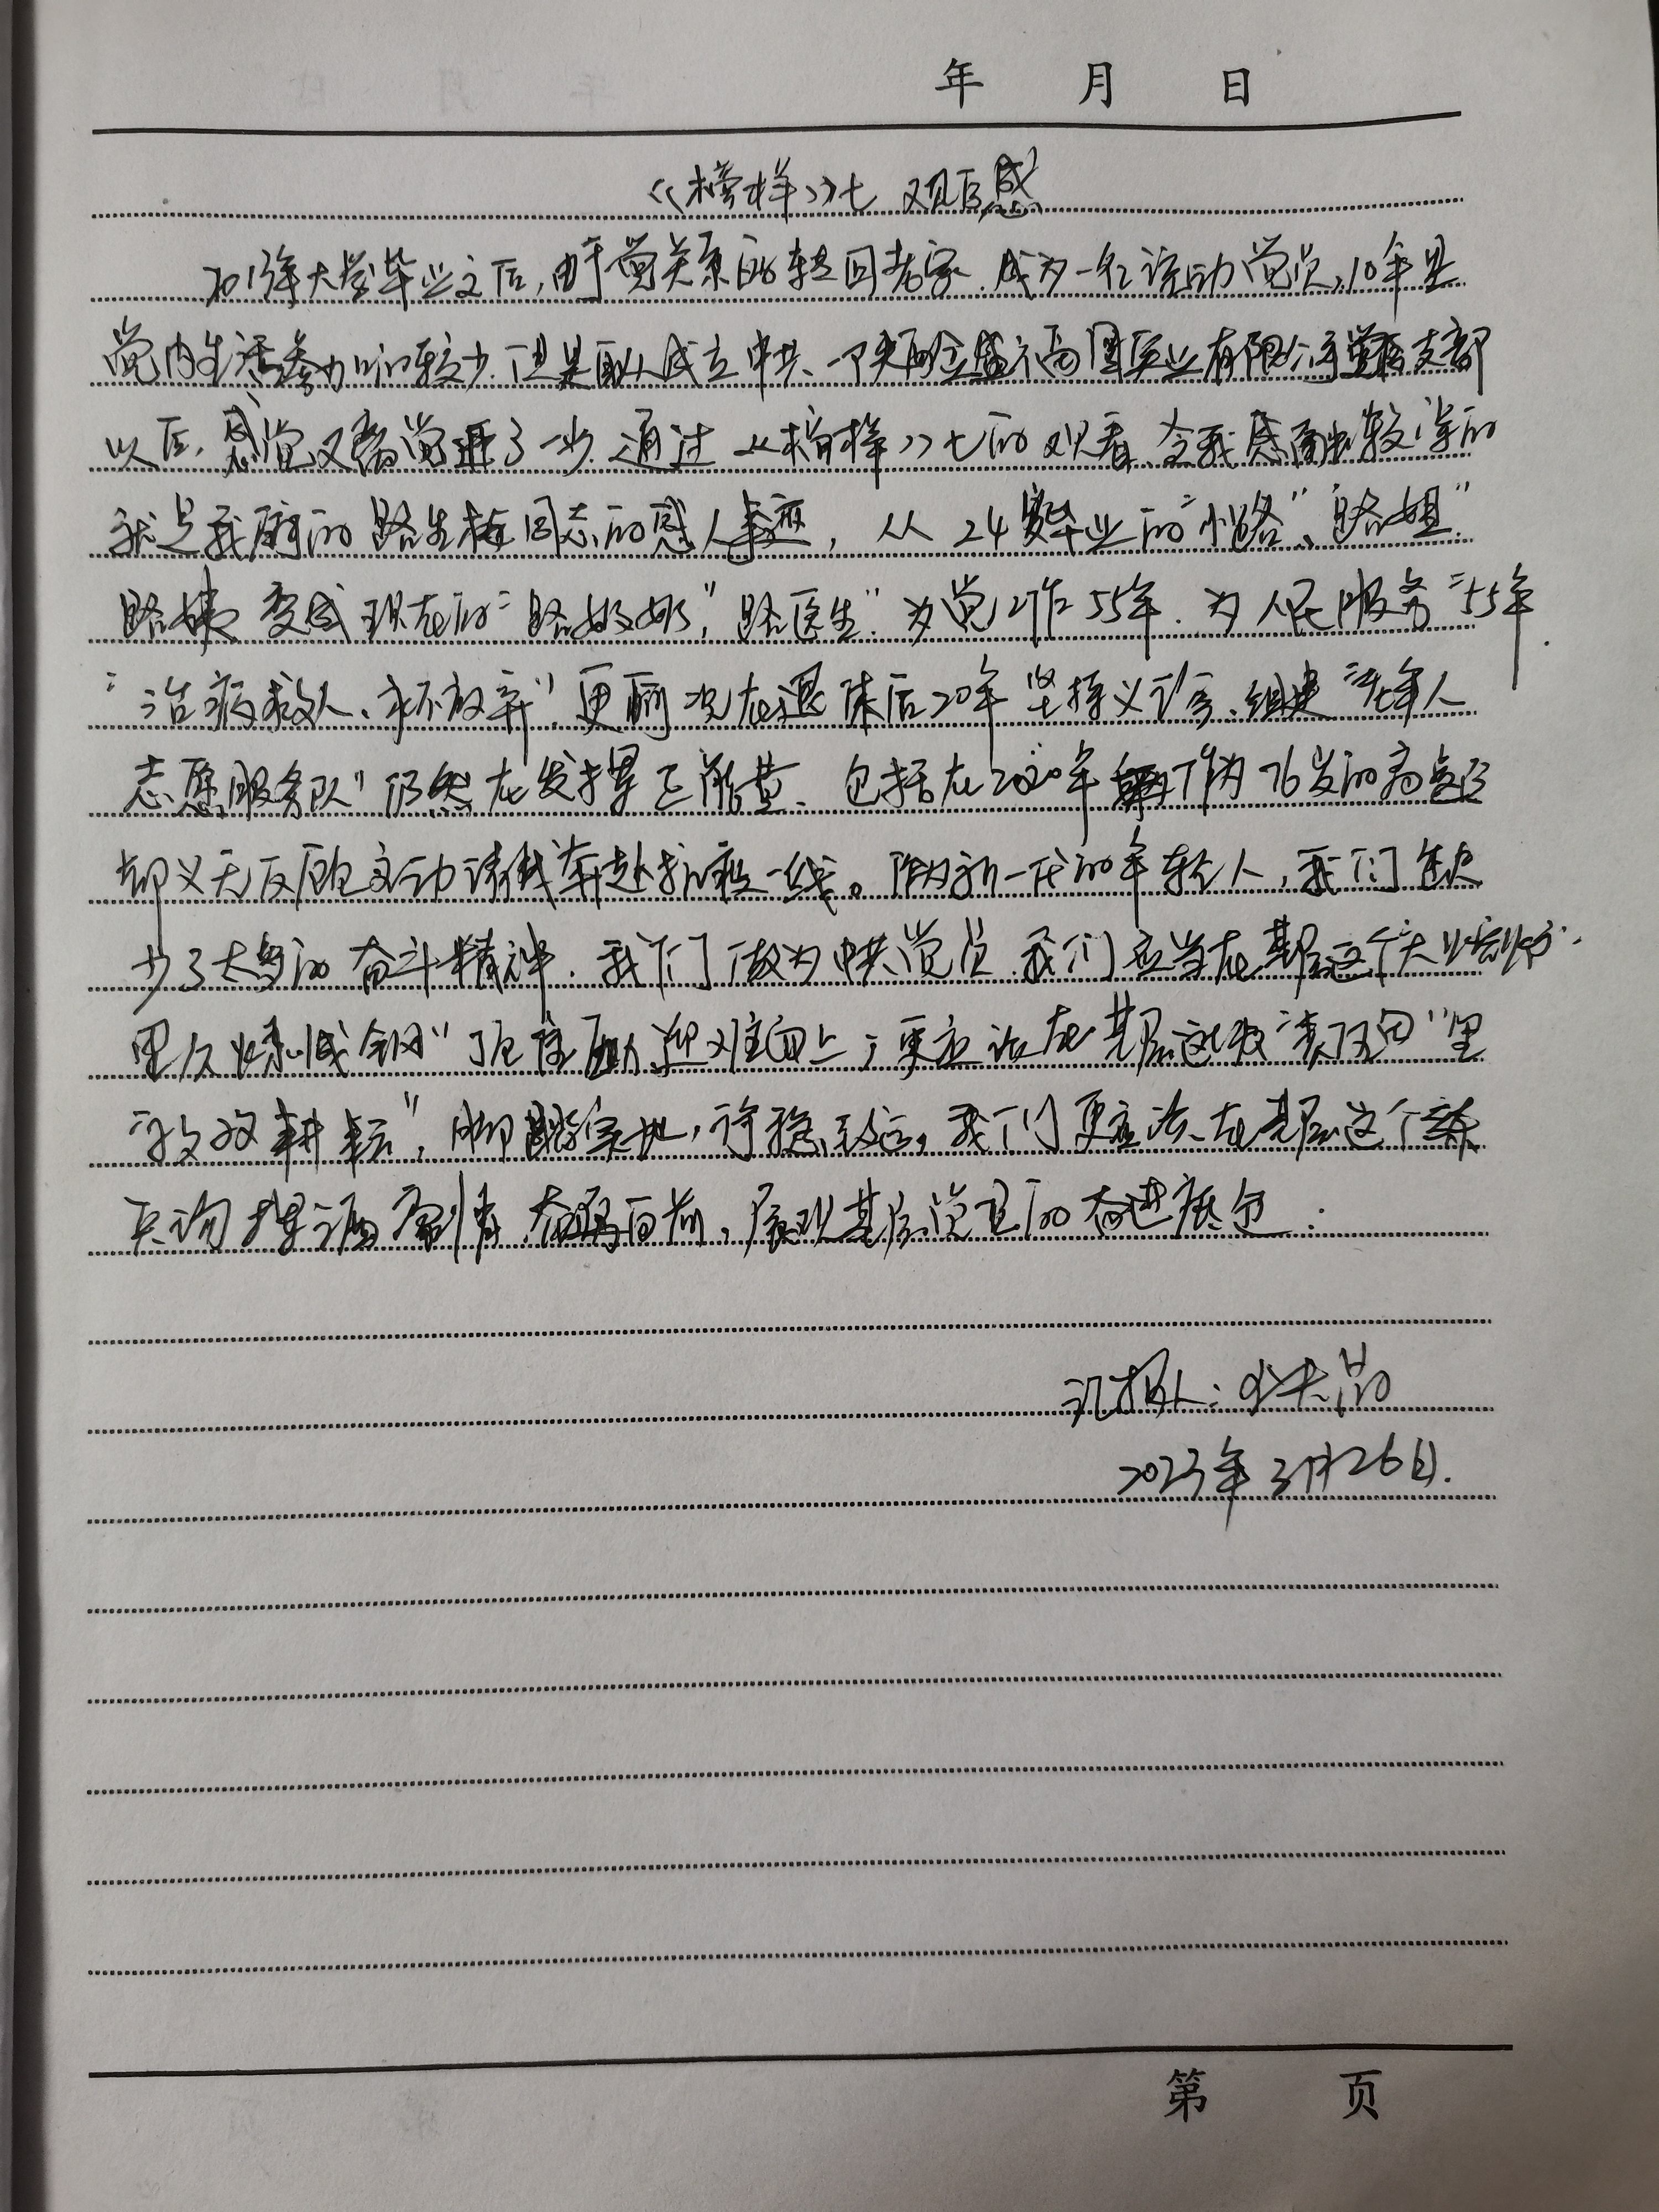 年 月 日
《榜样》七 观后感
2013年大学毕业之后,由于党关系的转回老家.成为一名流动党员,10年里
党内生活参加的较少.但是自从成立中共 实业有限公司党支部
以后,感觉又离党进了一步.通过《榜样》七的观看,令我感触较深的
就是我们的路生梅同志的感人事迹,从24岁毕业的“小路”、“路姐”
路姨变成现在的“路奶奶”,“路医生”.为党工作55年.为人民服务55年.
“治病救人、永不放弃”更 在退休后20年坚持义诊、组建“老年人
志愿服务队”仍然在发挥正能量、包括在2020年 作为76岁的高龄
却义无反顾主动请战奔赴抗疫一线。作为新一代的年轻人,我们缺
少了太多的奋斗精神.我们做为中共党员.我们应当在基层这个大熔炉
里“百炼成钢” 迎难向上;更应该在基层这块“责任田”里
“孜孜耕耘”,脚踏实地,行稳致远,我们更应该在基层这个
挥洒 情.奋勇向前,展现基层党员的奋进底色.
汇报人:
2023年3月26日.
第 页